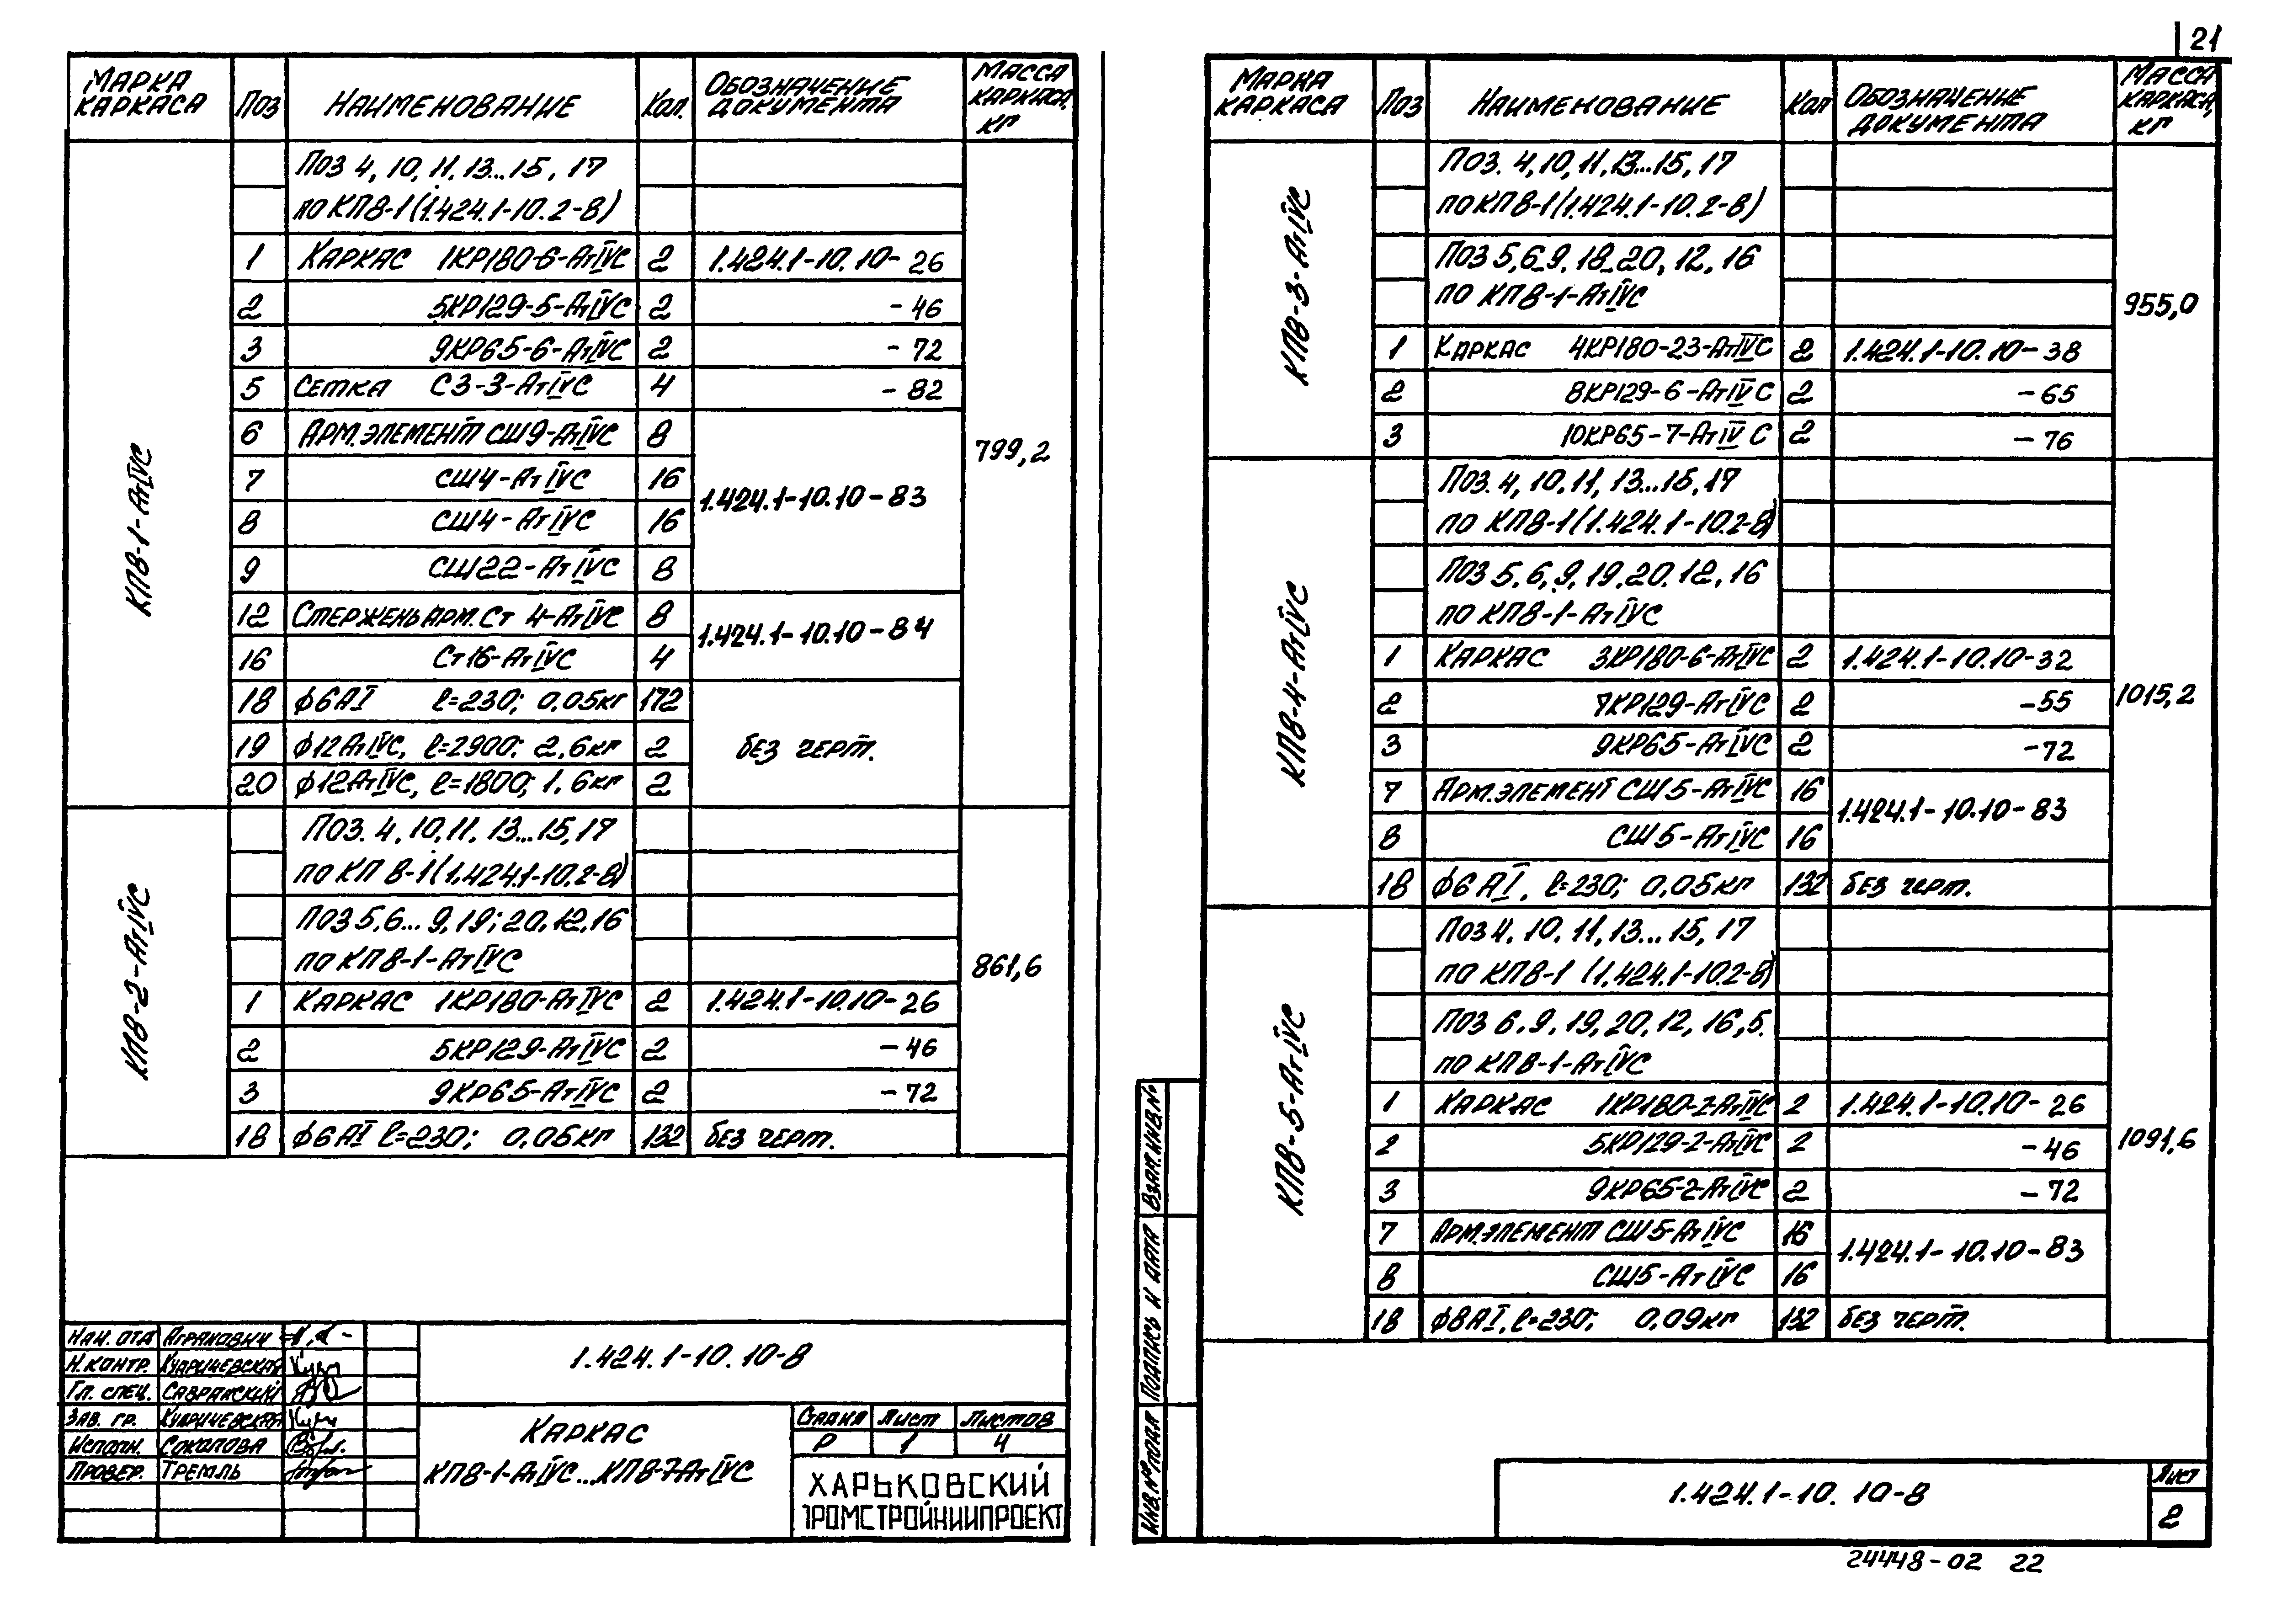 21
МАРКА КАРКАСА Поз НАИМЕНОВАНИЕ Кол. ОБОЗНАЧЕНИЕ ДОКУМЕНТА МАССА КАРКАСА, КГ
КП8-1-АтIVС
799,2
Поз 4, 10, 11, 13...15, 17
по КП8-1 (1.424.1-10.2-8)
1 КАРКАС 1КР180-6-АтIVС 2 1.424.1-10.10-26
2 5КР129-5-АтIVС 2 -46
3 9КР65-6-АтIVС 2 -72
5 СЕТКА С3-3-АтIVС 4 -82
6 АРМ.ЭЛЕМЕНТ СШ9-АтIVС 8
7 СШ4-АтIVС 16
1.424.1-10.10-83
8 СШ4-АтIVС 16
9 СШ22-АтIVС 8
12 СТЕРЖЕНЬ АРМ. Ст 4-АтIVС 8
1.424.1-10.10-84
16 Ст16-АтIVС 4
18 ф6АI ℓ=230; 0,05кг 172
19 ф12АтIVС, ℓ=2900; 2,6кг 2 БЕЗ ЧЕРТ.
20 ф12АтIVС, ℓ=1800; 1,6кг 2
КП8-2-АтIVС
861,6
Поз. 4, 10, 11, 13...15, 17
по КП 8-1 (1.424.1-10.2-8)
Поз 5, 6... 9, 19; 20, 12, 16
по КП8-1-АтIVС
1 КАРКАС 1КР180-АтIVС 2 1.424.1-10.10-26
2 5КР129-АтIVС 2 -46
3 9КР65-АтIVС 2 -72
18 ф6АI ℓ=230; 0,05кг 132 БЕЗ ЧЕРТ.
НАЧ. ОТД АГРАНОВИЧ
Н.КОНТР. КУДРИЧЕВСКАЯ
ГЛ. СПЕЦ. САВРАНСКИЙ
ЗАВ. ГР. КУДРИЧЕВСКАЯ
ИСПОЛН. СОКОЛОВА
ПРОВЕР. ТРЕМЛЬ
1.424.1-10.10-8
КАРКАС
КП8-1-АтIVС...КП8-7АтIVС
СТАДИЯ ЛИСТ ЛИСТОВ
Р 1 4
ХАРЬКОВСКИЙ
ПРОМСТРОЙНИИПРОЕКТ
МАРКА КАРКАСА Поз НАИМЕНОВАНИЕ Кол ОБОЗНАЧЕНИЕ ДОКУМЕНТА МАССА КАРКАСА, КГ
КП8-3-АтIVС
955,0
Поз. 4, 10, 11, 13...15, 17
по КП8-1 (1.424.1-10.2-8)
Поз 5, 6-9, 18-20, 12, 16
по КП8-1-АтIVС
1 КАРКАС 4КР180-23-АтIVС 2 1.424.1-10.10-38
2 8КР129-6-АтIVС 2 -65
3 10КР65-7-АтIVС 2 -76
КП8-4-АтIVС
1015,2
Поз. 4, 10, 11, 13...15, 17
по КП8-1 (1.424.1-10.2-8)
Поз 5, 6, 9, 19, 20, 12, 16
по КП8-1-АтIVС
1 КАРКАС 3КР180-6-АтIVС 2 1.424.1-10.10-32
2 7КР129-АтIVС 2 -55
3 9КР65-АтIVС 2 -72
7 АРМ.ЭЛЕМЕНТ СШ5-АтIVС 16
1.424.1-10.10-83
8 СШ5-АтIVС 16
18 ф6АI, ℓ=230; 0,05кг 132 БЕЗ ЧЕРТ.
КП8-5-АтIVС
1091,6
Поз 4, 10, 11, 13...15, 17
по КП8-1 (1.424.1-10.2-8)
Поз 6, 9, 19, 20, 12, 16, 5.
по КП8-1-АтIVС
1 КАРКАС 1КР180-2-АтIVС 2 1.424.1-10.10-26
2 5КР129-2-АтIVС 2 -46
3 9КР65-2-АтIVС 2 -72
7 АРМ.ЭЛЕМЕНТ СШ5-АтIVС 16
1.424.1-10.10-83
8 СШ5-АтIVС 16
18 ф8АI, ℓ=230; 0,09кг 132 БЕЗ ЧЕРТ.
ВЗАМ.ИНВ.№
ПОДПИСЬ И ДАТА
ИНВ.№ПОДЛ
1.424.1-10.10-8
ЛИСТ
2
24448-02 22